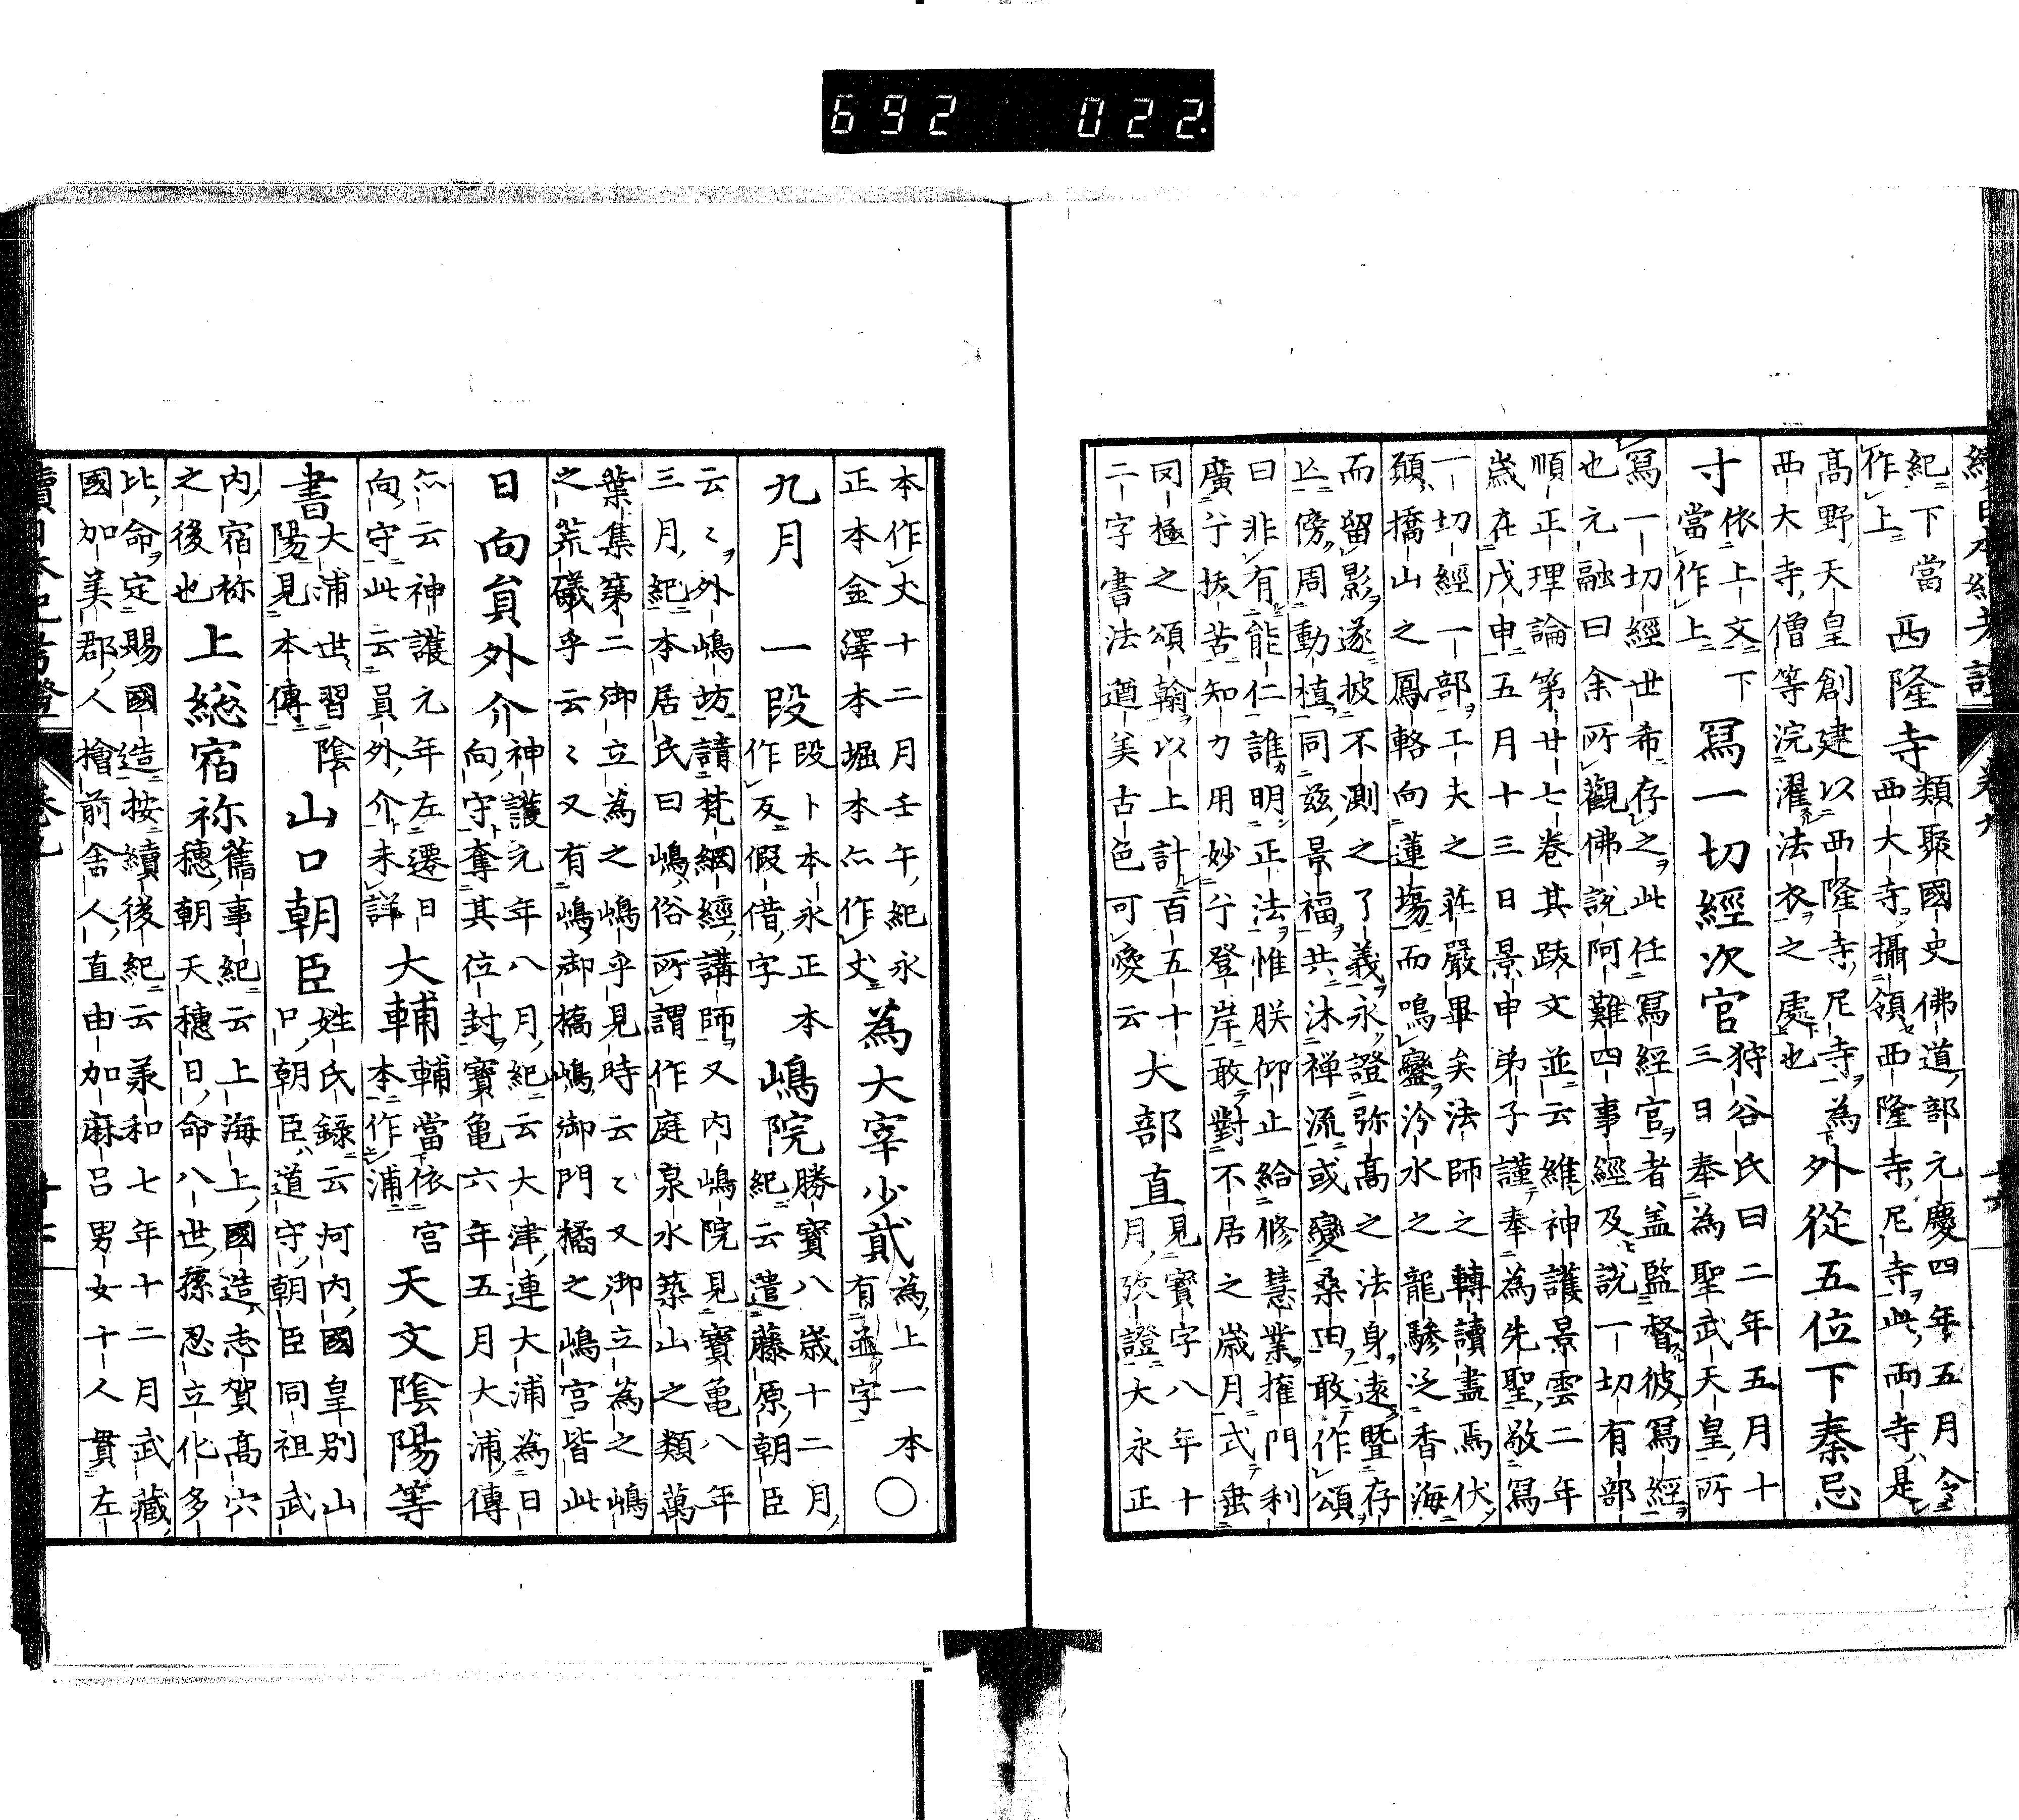 692 022.
紀下當
作上 西隆寺 類聚國史佛道部元慶四年五月令
西大寺攝領西隆寺尼寺此両寺是
高野天皇創建以西隆寺尼寺為
西大寺僧等浣濯法衣之處也 外從五位下秦忌
寸 依上文下
當作上 冩一切經次官 狩谷氏曰二年五月十
三日奉為聖武天皇所
冩一切經世希存之此任冩經官者盖監督彼冩經
也元融曰余所觀佛説阿難四事經及説一切有部
順正理論第廿七卷其跋文並云維神護景雲二年
歳在戊申五月十三日景申弟子謹奉為先聖敬冩
一切經一部工夫之荘嚴畢矣法師之轉讀盡焉伏
願橋山之鳳輅向蓮塲而鳴鑾汾水之龍驂泛香海
而留影遂披不測之了義永證弥髙之法身遠曁存
亾傍周動植同兹景福共沐禅流或變桑田敢作頌
曰非有能仁誰明正法惟朕仰止給修慧業權門利
廣兮拔苦知力用妙兮登岸敢對不居之歳月式垂
罔極之頌翰以上計百五十
二字書法遒美古色可愛云 大部直 見寳字八年十
月攷證大永正
本作丈十二月壬午紀永
正本金澤本堀本亦作丈 為大宰少貳 為上一本
有並字 ○
九月 一段 段卜本永正本
作叚假借字 嶋院 勝寳八歳十二月
紀云遣藤原朝臣
云〻外嶋坊請梵網經講師又内嶋院見寳亀八年
三月紀本居氏曰嶋俗所謂作庭泉水築山之類萬
葉集第二御立為之嶋乎見時云〻又御立為之嶋
之荒礒乎云〻又有嶋御橋嶋御門橘之嶋宮皆此
日向貟外介 神護元年八月紀云大津連大浦為日
向守奪其位封寳亀六年五月大浦傳
亦云神護元年左遷日
向守此云員外介未詳 大輔 輔當依宮
本作浦 天文陰陽等
書 大浦世習陰
陽見本傳 山口朝臣 姓氏録云河内國皇别山
口朝臣道守朝臣同祖武
内宿祢
之後也 上総宿祢 舊事紀云上海上國造志賀髙穴
穗朝天穗日命八世孫忍立化多
比命定賜國造按續後紀云承和七年十二月武藏
國加美郡人檜前舎人直由加麻呂男女十人貫左